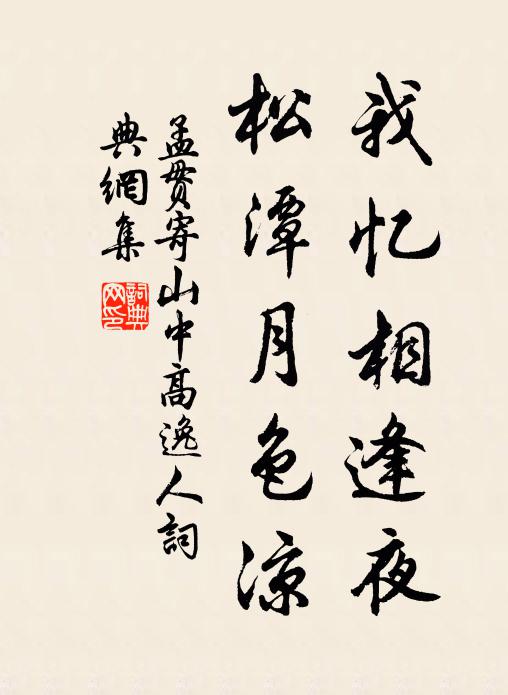 我忆相逢夜
松潭月色凉
孟贯寄山中高逸人詞
典網集
詞典
网印